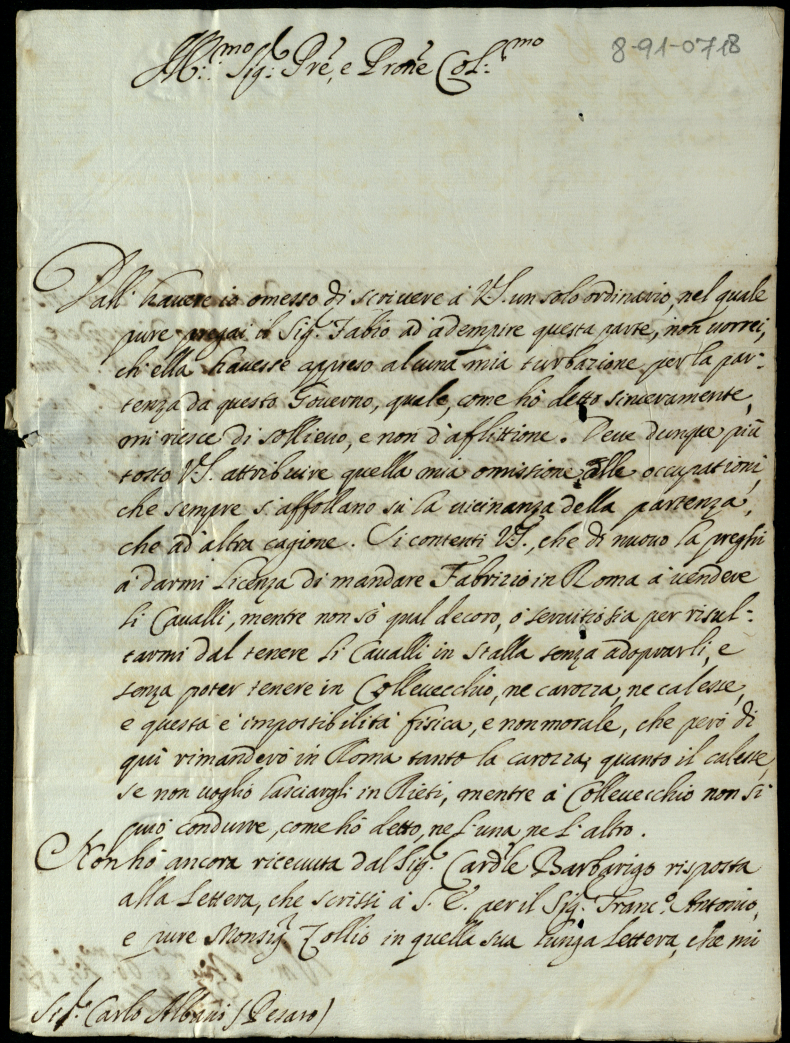 8-91-0718
Ill:mo Sig:r Pre, e Prone Col:mo
Dall' havere io omesso di scrivere à VS. un solo ordinario, nel quale
pure pregai il Sig.r Fabio ad' adempire questa parte, non vorrei,
ch'ella havesse appreso alcuna mia turbazione per la par-
tenza da questo Governo, quale, come hò detto sinceramente,
mi riesce di sollievo, e non d'aflittione. Deve dunque più
tosto VS. attribuire quella mia omissione alle occupationi,
che sempre s'affollano sù la vicinanza della partenza,
che ad' altra cagione. Si contenti VS., che di nuovo la preghi
à darmi licenza di mandare Fabrizio in Roma à vendere
li Cavalli, mentre non sò qual decoro, ò servitio sia per risul-
tarmi dal tenere li Cavalli in stalla senza adoprarli, e
senza poter tenere in Collevecchio, ne carozza, ne calesse,
e questa è impossibilità fisica, e non morale, che però di
quì rimanderò in Roma tanto la carozza, quanto il calesse,
se non voglio lasciargli in Rieti, mentre à Collevecchio non si
può condurre, come hò detto, ne l'una, ne l'altro.
Non hò ancora ricevuta dal Sig.r Card.le Barbarigo risposta
alla Lettera, che scrissi à S. E. per il Sig.r Franc.o Antonio,
e pure Monsig.r Zollio in quella sua lunga Lettera, che mi
Sig.r Carlo Albani (Pesaro)